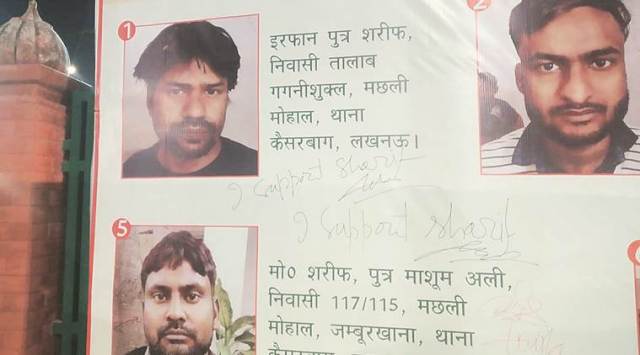 1
इरफान पुत्र शरीफ,
निवासी तालाब
गगनीशुक्ल, मछली
मोहाल, थाना
कैसरबाग, लखनऊ।
2
I support sharif
I support sharif
5
मो० शरीफ, पुत्र माशूम अली,
निवासी 117/115, मछली
मोहाल, जम्बूरखाना, थाना